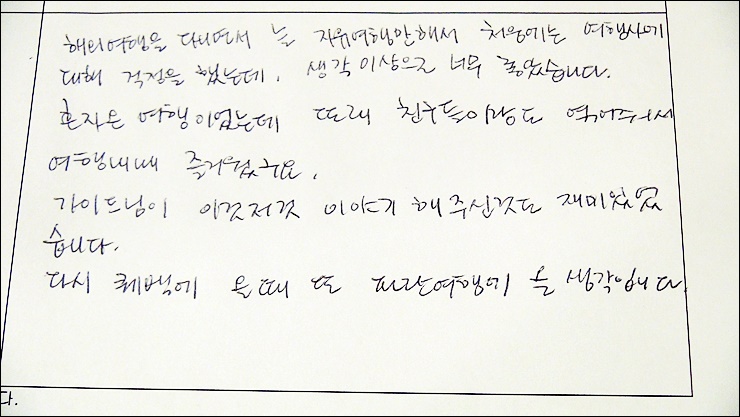 해외여행을 다니면서 늘 자유여행만해서 처음에는 여행사에
대해 걱정을 했는데, 생각이상으로 너무 좋았습니다.
혼자온 여행이었는데 또래 친구들이랑도 엮어주셔서
여행내내 즐거웠어요.
가이드님이 이것저것 이야기 해주신것도 재미있었
습니다.
다시 퀘벡에 올때 또 파란여행에 올 생각입니다.
다.